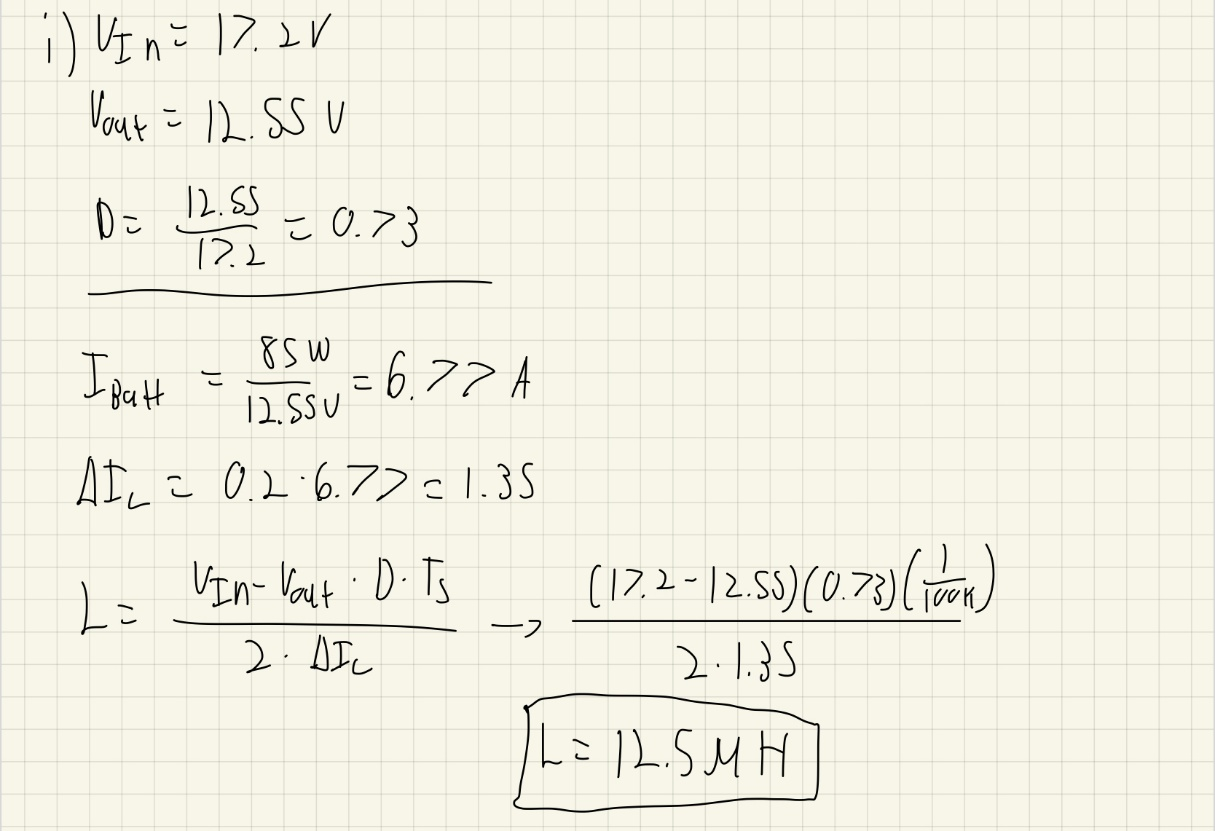 i) V_In = 17.2V
V_out = 12.55 V
D = 12.55/17.2 = 0.73
I_Batt = 85W/12.55V = 6.77 A
ΔI_L = 0.2 · 6.77 = 1.35
L = (V_In - V_out · D · T_s)/(2 · ΔI_L) → ((17.2 - 12.55)(0.73)(1/100K))/(2 · 1.35)
L = 12.5 μH